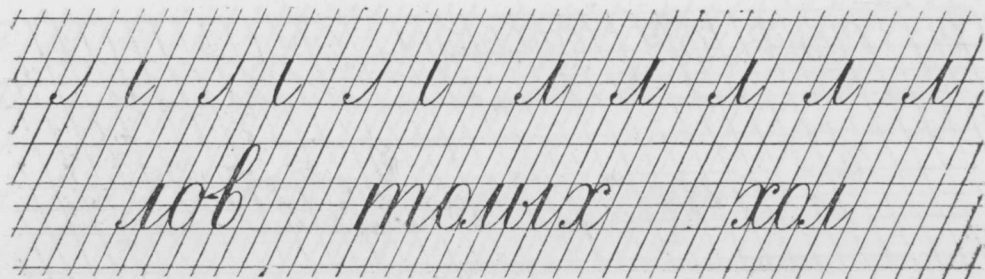 л л л л л
лов толых хол